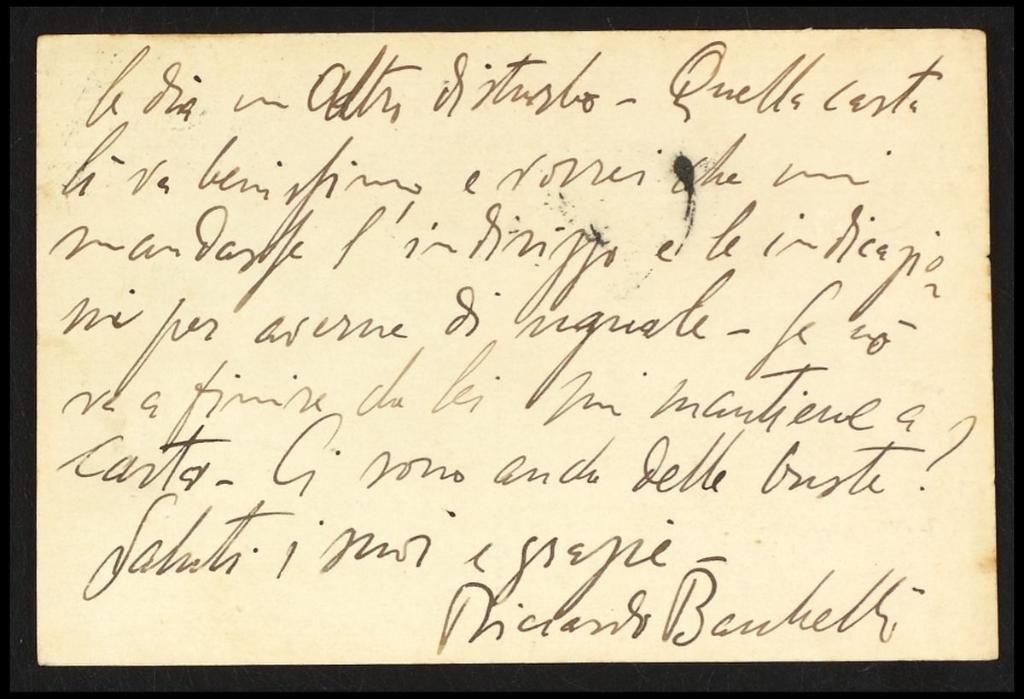 le dia un altro disturbo - Quella carta
lì va benissimo, e vorrei che mi
mandasse l'indirizzo e le indicazio
ni per averne di uguale - Se nò
va a finire che lei mi mantiene a
carta - Ci sono anche delle buste?
Saluti i suoi e grazie -
Riccardo Bacchelli